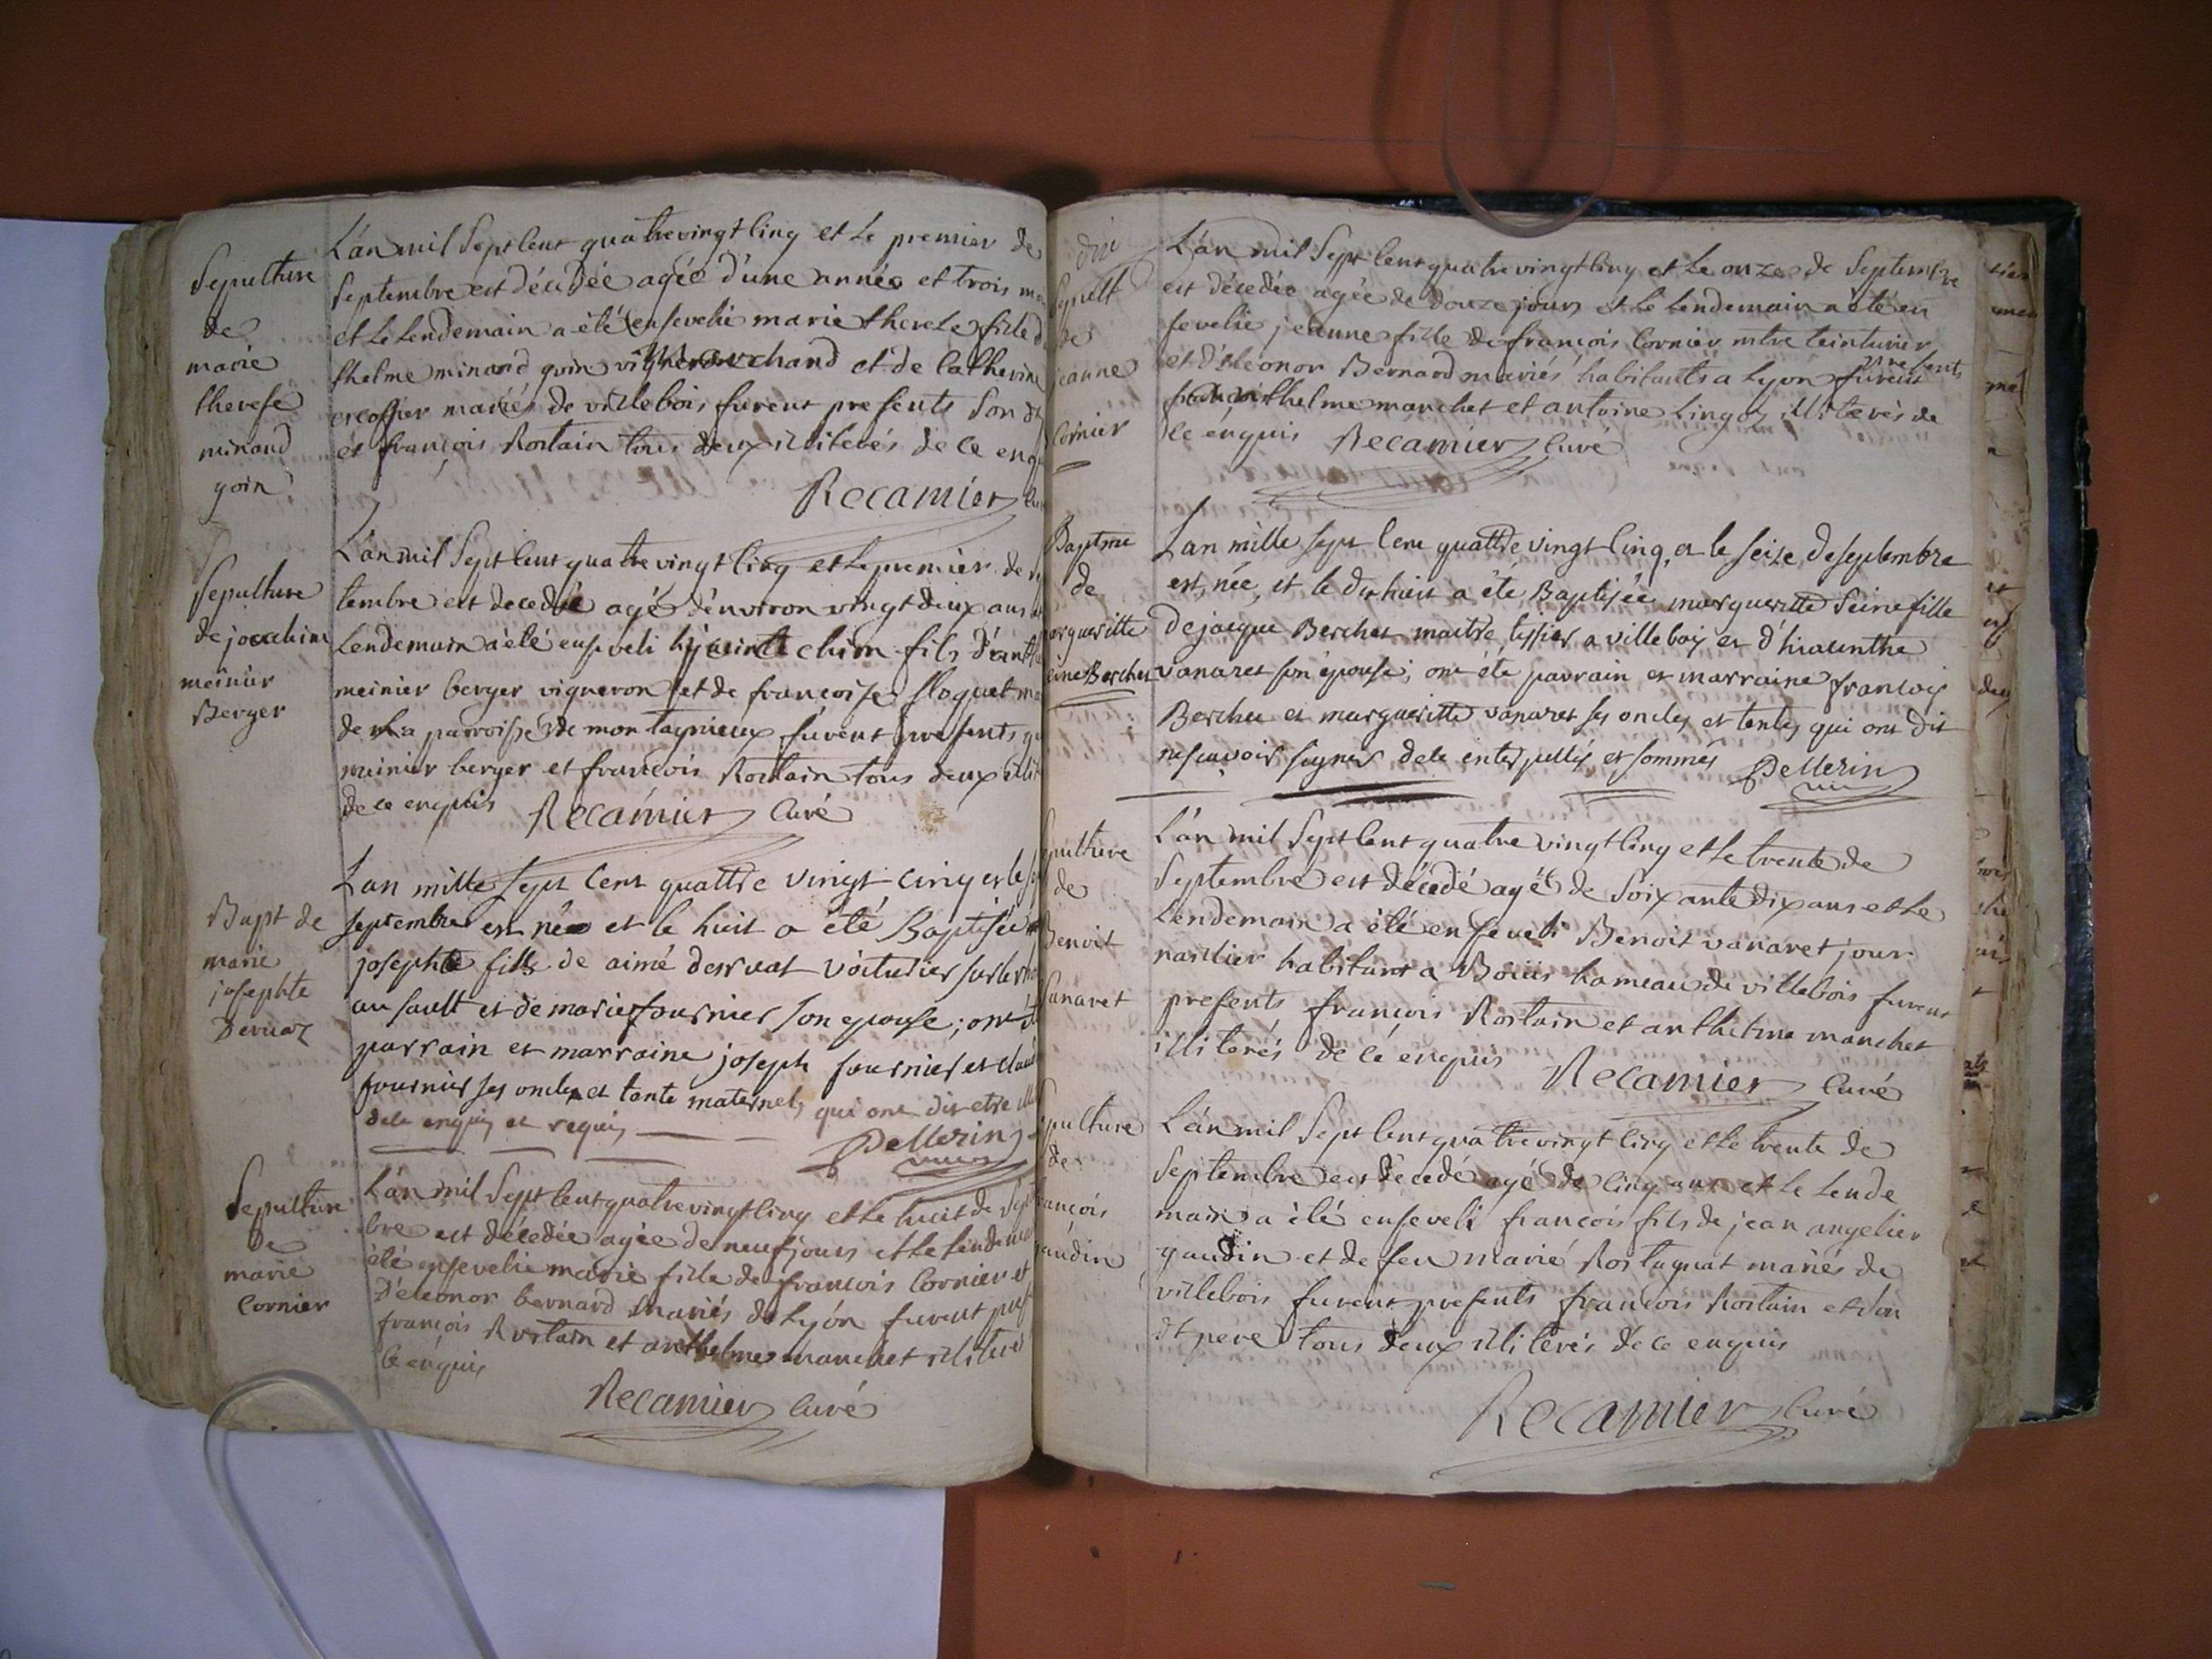 Sepulture
de
marie
therese
minand
goin
L'an mil Sept Cent quatre vingt Cinq et Le premier de
Septembre est décédée agée d'une année et trois
et Le Lendemain a été ensevelie marie therese fille
thelme minand goin marchand et de Catherine
escoffier mariés de villebois furent presents Son
et françois Rostain tous deux illiterés de Ce
Recamier
Sepulture
de joachim
meinier
Berger
L'an mil Sept Cent quatre vingt Cinq et Le premier de
tembre est decedé agé d'environ vingt deux ans
Lendemain a été enseveli chim fils d'
meinier berger vigneron et de françoise
de La parroisse de montagnieux furent presents
meinier berger et francois Rostain tous deux
de ce enquis Recamier Curé
Bapt de
marie
josephte
Dervaz
L'an mille sept Cent quattre vingt cinq et le
septembre est née et le huit a été Baptisée
josephte fille de aimé voiturier sur le
au sault et de marie fournier son epouse; ont
parrain et marraine joseph fournier et
fournier ses oncle et tante maternels qui ont dit etre
dele enquis et requis
Pellerin
Sepulture
de
marie
Cornier
L'an mil Sept Cent quatre vingt Cinq et Le huit de
bre est décédée agée de neuf jours et Le Lendemain
été ensevelie marie fille de françois Cornier et
D'eleonor bernard mariés de Lyón furent
françois Rostain et anthelme manchet
Ce enquis
Recamier Curé
Sepult
de
jeanne
Cornier
L'an mil Sept Cent quatre vingt Cinq et Le onze de Septembre
est décédée agée de douze jours et Le Lendemain a été en
sevelie jeanne fille de françois Cornier mtre teinturier
et d'éléonor Bernard mariés habitants a Lyón furent presents
thelme manchet et antoine illiterés de
Ce enquis Recamier Curé
Baptme
de
argueritte
eine Berchet
L'an mille sept Cent quattre vingt Cinq, et le seize de septembre
est née, et le dix huit a été Baptisée margueritte Seine fille
de jacque Berchet maitre tissier a villebois et d'hiacinthe
vanaret son épouse; ont été parrain et marraine francois
Berchet et margueritte vanaret ses oncles et tantes qui ont dit
ne scavoir signer dele interpellés et sommés Pellerin
pulture
de
Benoit
vanaret
L'an mil Sept Cent quatre vingt Cinq et Le trente de
Septembre est décédé agé de Soixante dix ans et Le
Lendemain a été enseveli Benoit vanaret jour
nartier habitant a Boüis hameau de villebois furent
presents françois Rostain et anthelme manchet
illiterés de Cé enquis Recamier Curé
pulture
de
ançois
gaudin
L'an mil Sept Cent quatre vingt Cinq et Le trente de
Septembre est décedé agé de Cinq ans et Le Lende
main a été enseveli françois fils de jean angelier
gaudin et de feu marie Rostagnat mariés de
villebois furent presents francois Rostain et Son
dt pere tous deux illiterés de ce enquis
Recamier Curé